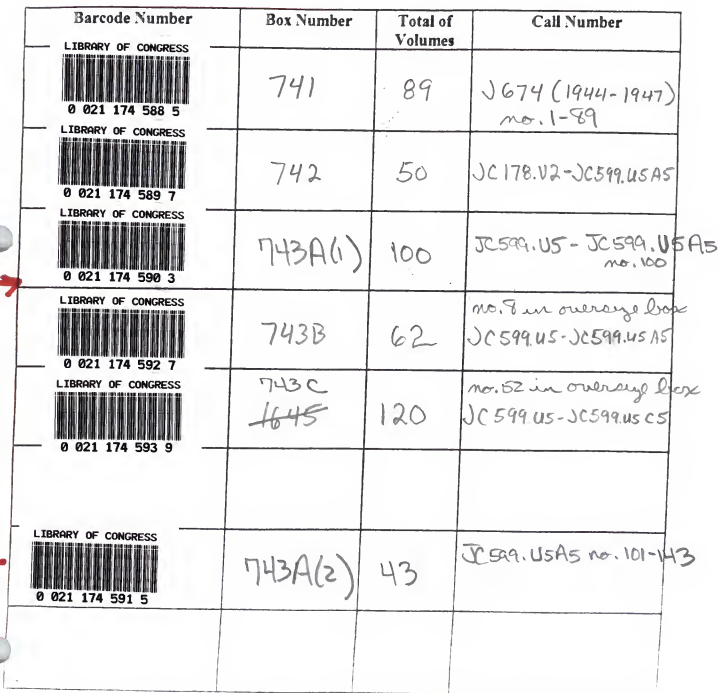 Barcode Number Box Number Total of Volumes Call Number
LIBRARY OF CONGRESS
0 021 174 588 5
741
89
J674 (1944-1947)
no. 1-89
LIBRARY OF CONGRESS
0 021 174 589 7
742
50
JC178.V2-JC599.U5A5
LIBRARY OF CONGRESS
0 021 174 590 3
743A(1)
100
JC599.U5-JC599.U5A5
no. 100
LIBRARY OF CONGRESS
0 021 174 592 7
743B
62
no. 8 in oversize box
JC599.U5-JC599.U5A5
LIBRARY OF CONGRESS
0 021 174 593 9
743C
1645
120
no. 52 in oversize box
JC599.U5-JC599.U5C5
LIBRARY OF CONGRESS
0 021 174 591 5
743A(2)
43
JC599.U5A5 no. 101-143